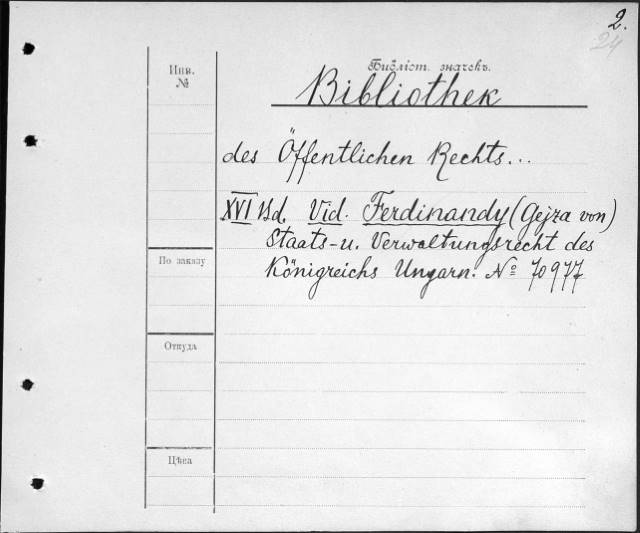 2.
24
Инв.
№
Библіот. значекъ.
Bibliothek
des Öffentlichen Rechts...
XVI Bd. Vid. Ferdinandy (Gejza von)
Staats- u. Verwaltungsrecht des
Königreichs Ungarn. № 70977
По заказу
Откуда
Цѣна